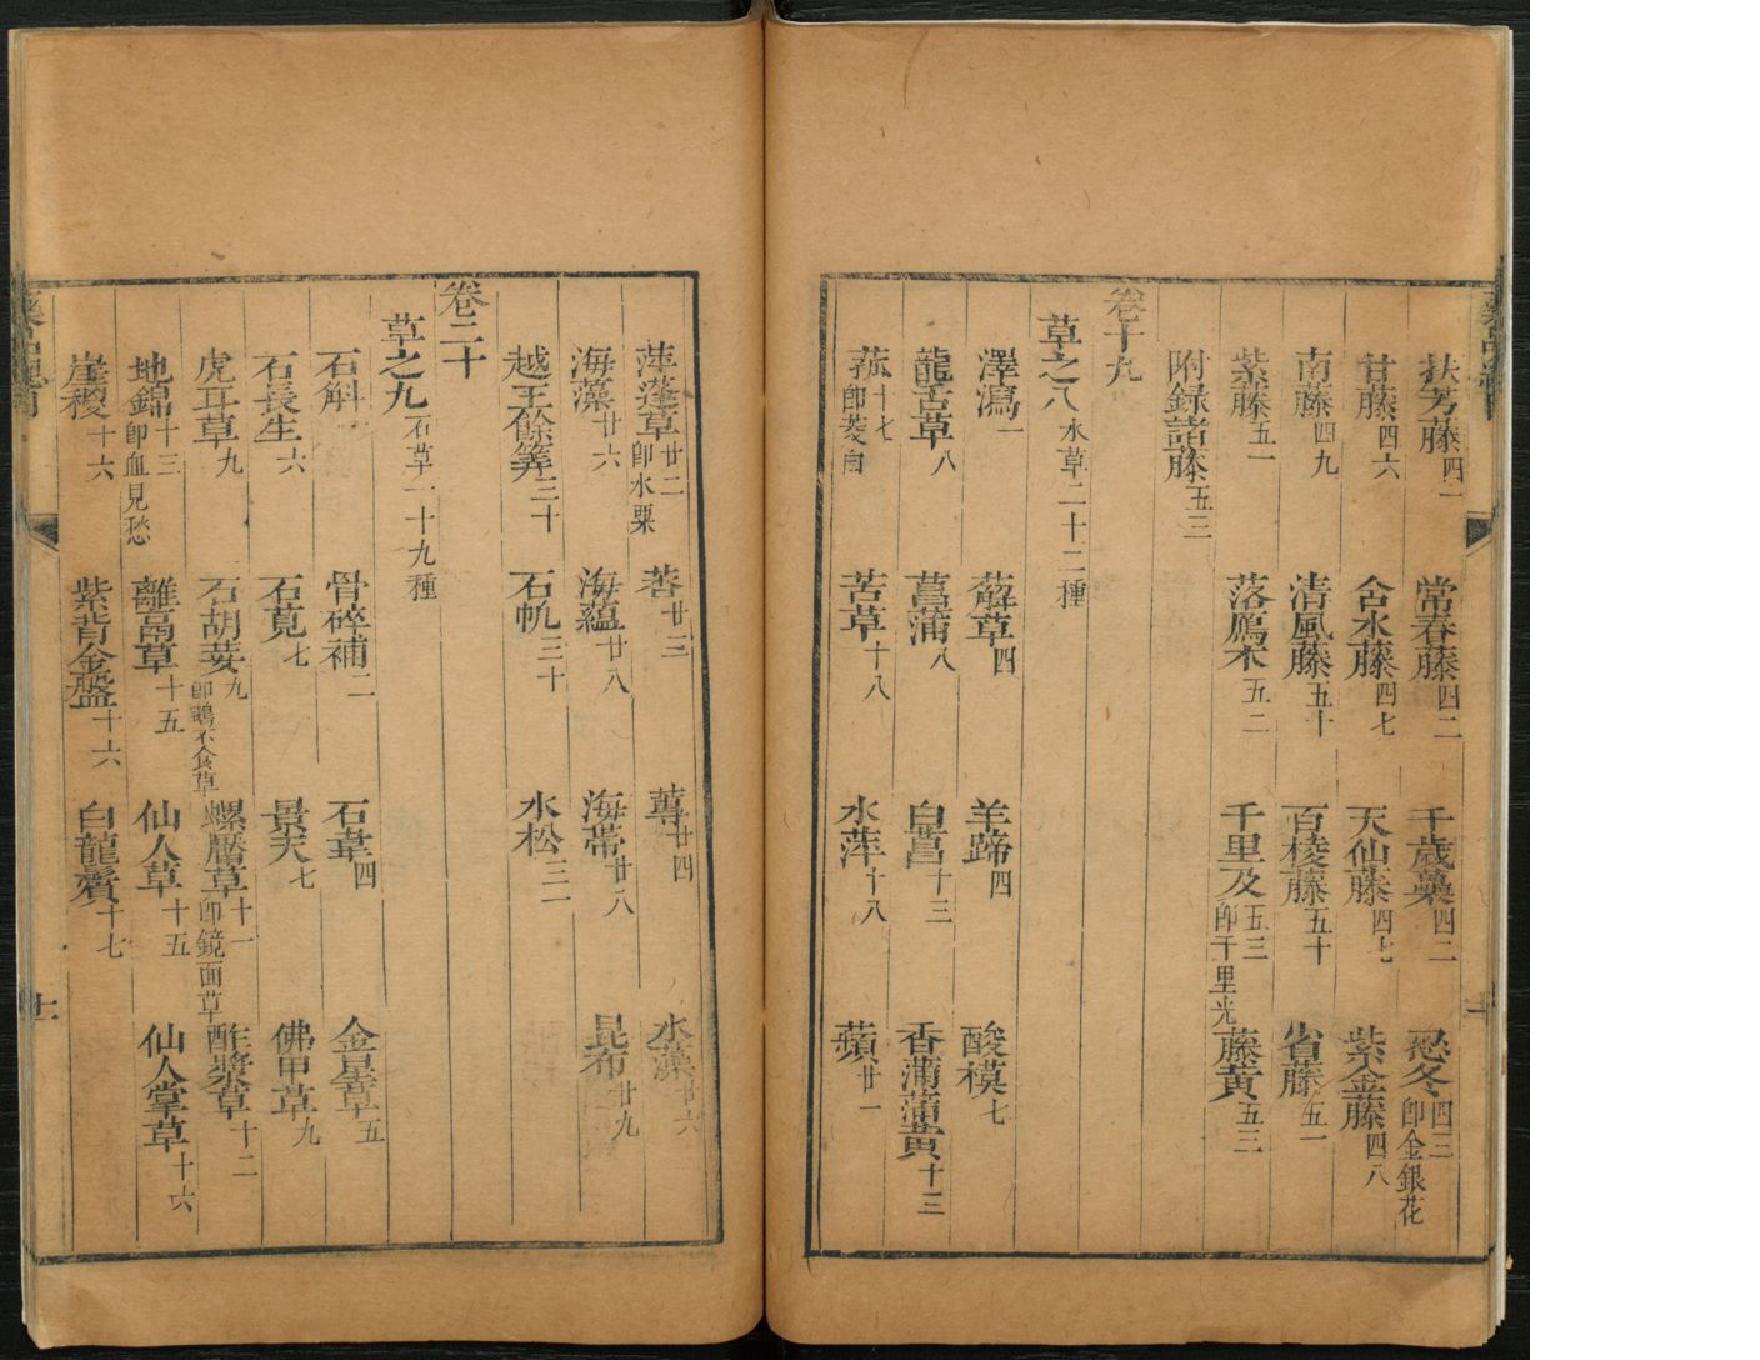 扶芳藤四一 常春藤四二 千歲虆四二 忍冬四三即金銀花
甘藤四六 含水藤四七 天仙藤四七 紫金藤四八
南藤四九 清風藤五十 百棱藤五十 省藤五一
紫藤五一 落鴈木五二 千里及五三即千里光 藤黃五三
附錄諸藤五三
卷十九
草之八水草二十二種
澤瀉一 蔛草四 羊蹄四 酸模七
龍舌草八 菖蒲八 白菖十三 香蒲蒲黃十三
菰十七即茭 苦草十八 水萍十八 蘋廿一
萍蓬草廿二即水粟 莕廿三 蓴廿四 水藻廿六
海藻廿六 海蘊廿八 海帶廿八 昆布廿九
越王餘筭三十 石帆三十 水松三一
卷二十
草之九石草一十九種
石斛一 骨碎補二 石韋四 金星草五
石長生六 石莧七 景天七 佛甲草九
虎耳草九 石胡荽九即鵝不食草 螺厴草十一即鏡面草 酢漿草十二
地錦十三即血見愁 離鬲草十五 仙人草十五 仙人掌草十六
崖㮨十六 紫背金盤十六 白龍鬚十七